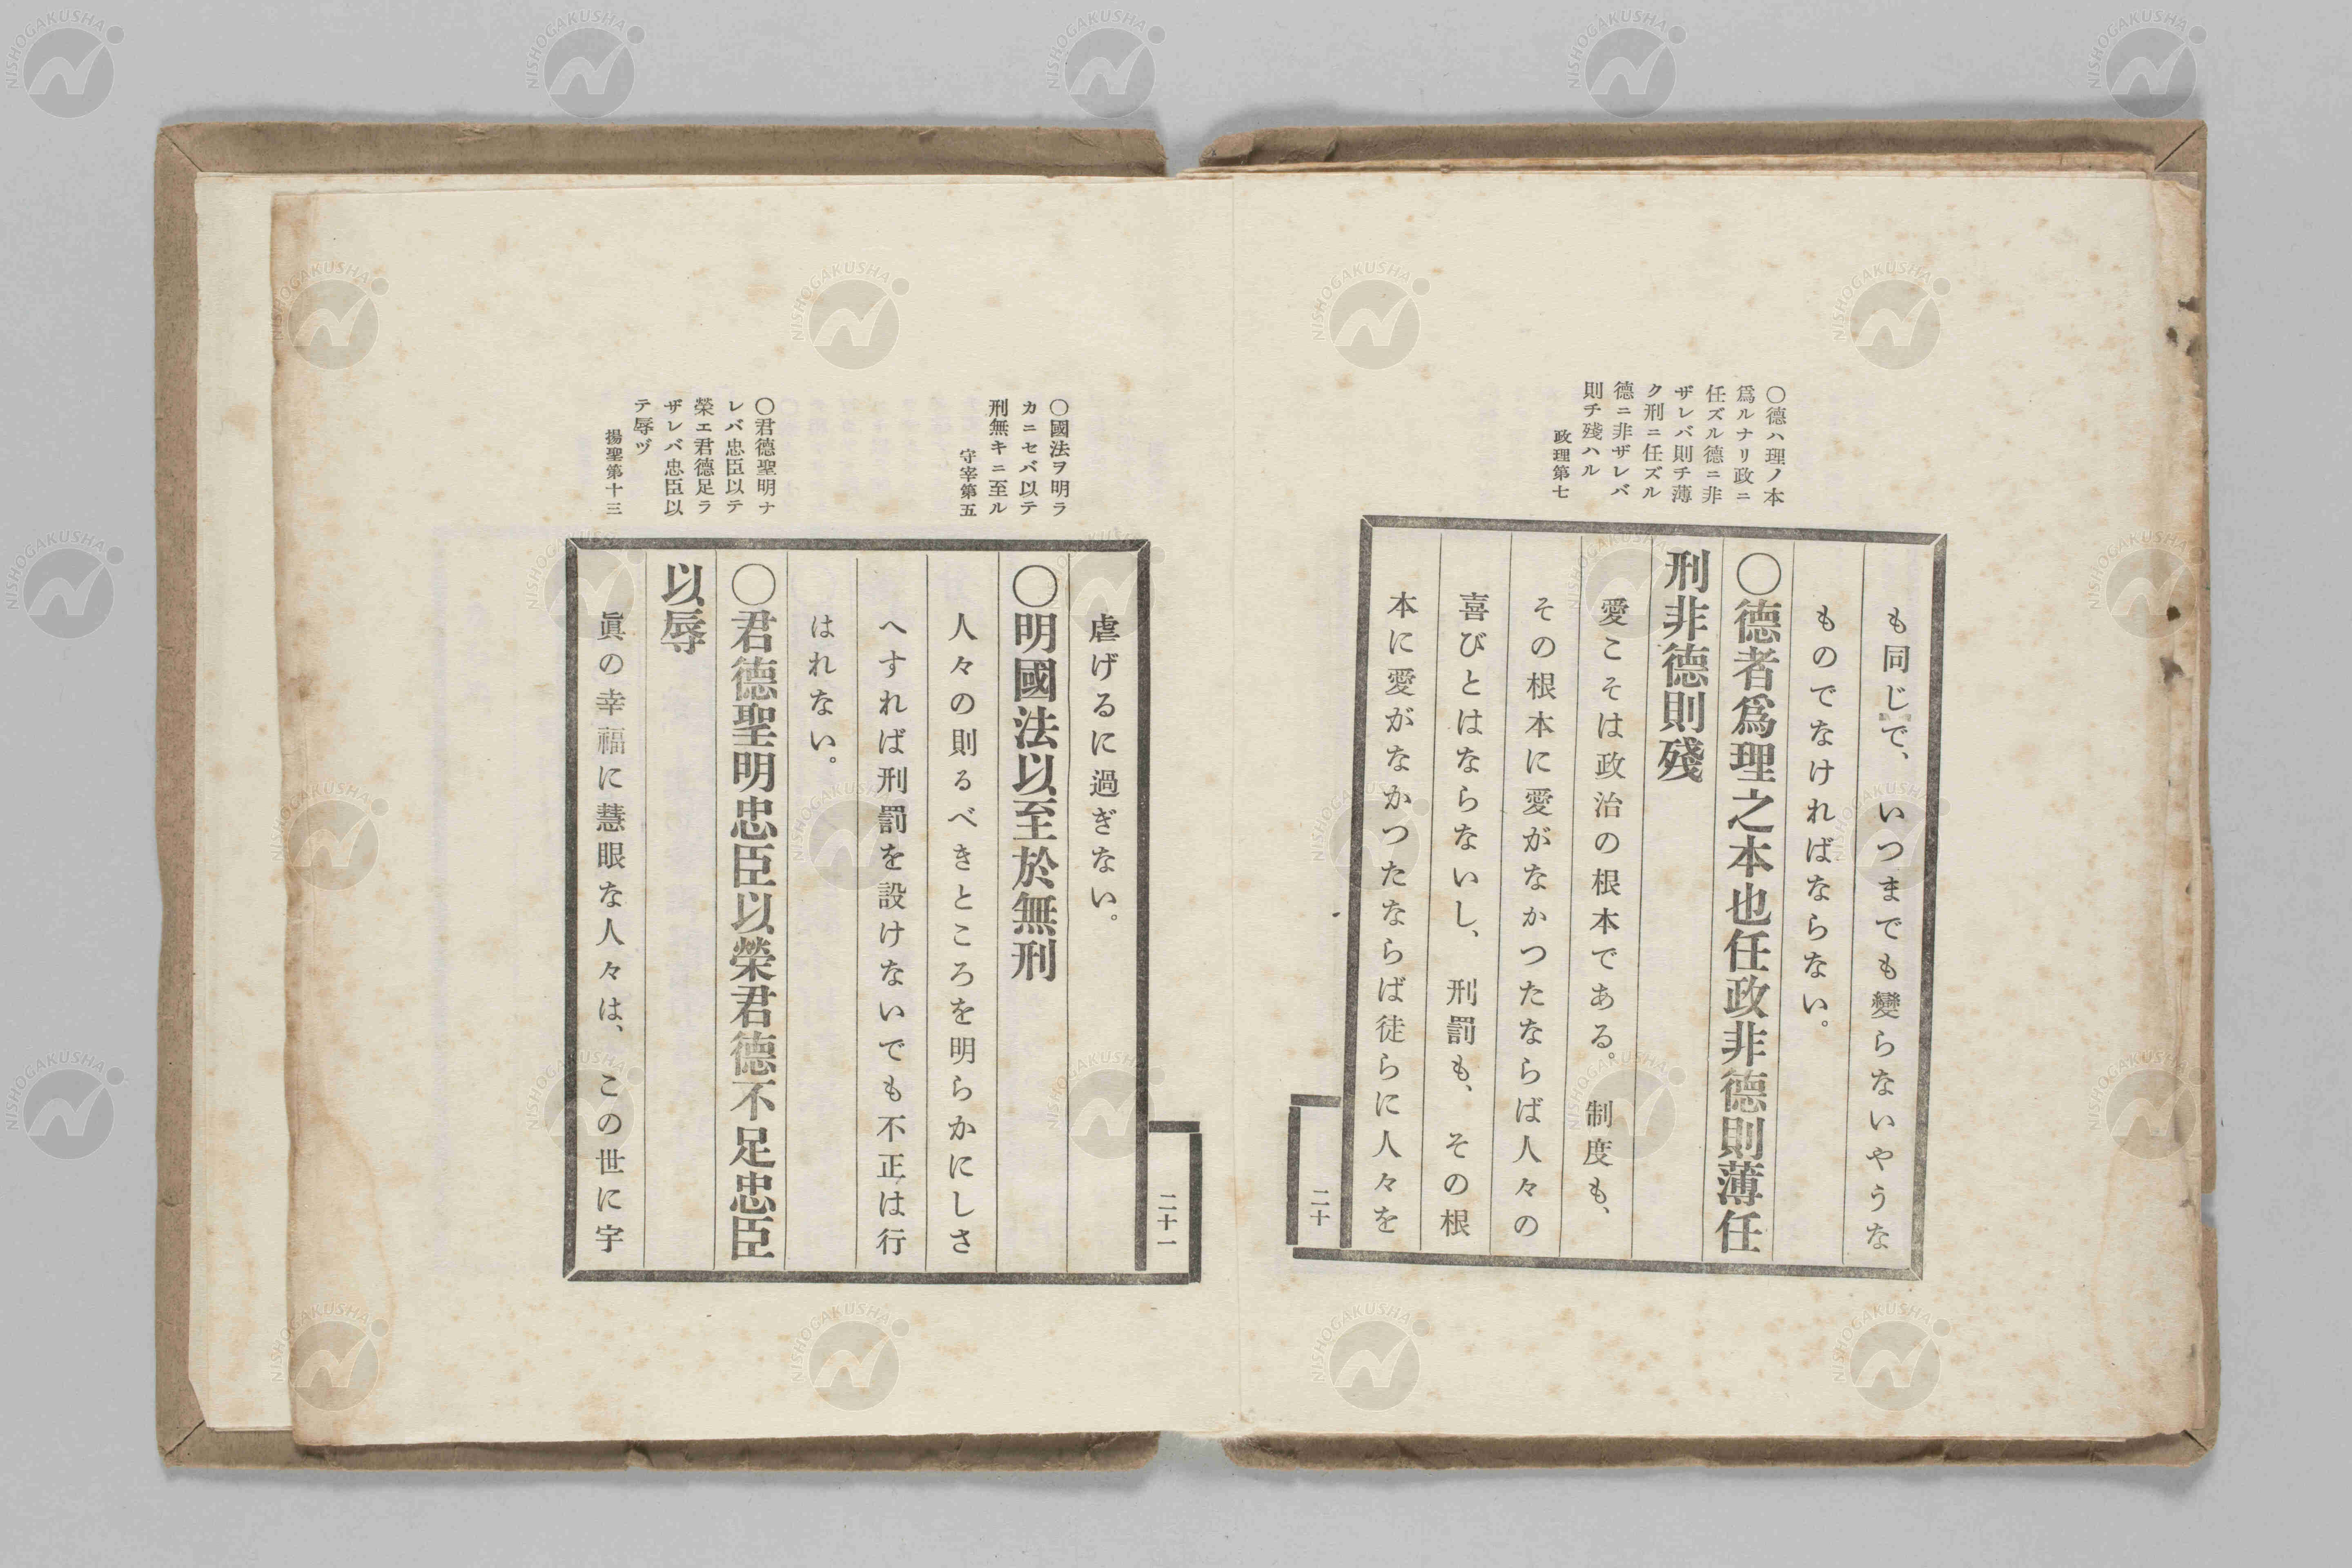 ○德ハ理ノ本
爲ルナリ政ニ
任ズル德ニ非
ザレバ則チ薄
ク刑ニ任ズル
德ニ非ザレバ
則チ殘ハル
政理第七
も同じで、いつまでも變らないやうな
ものでなければならない。
○德者爲理之本也任政非德則薄任
刑非德則殘
愛こそは政治の根本である。制度も、
その根本に愛がなかつたならば人々の
喜びとはならないし、刑罰も、その根
本に愛がなかつたならば徒らに人々を
二十
○國法ヲ明ラ
カニセバ以テ
刑無キニ至ル
守宰第五
○君德聖明ナ
レバ忠臣以テ
榮エ君德足ラ
ザレバ忠臣以
テ辱ヅ
揚聖第十三
二十一
虐げるに過ぎない。
○明國法以至於無刑
人々の則るべきところを明らかにしさ
へすれば刑罰を設けないでも不正は行
はれない。
○君德聖明忠臣以榮君德不足忠臣
以辱
眞の幸福に慧眼な人々は、この世に宇
NISHOGAKUSHA